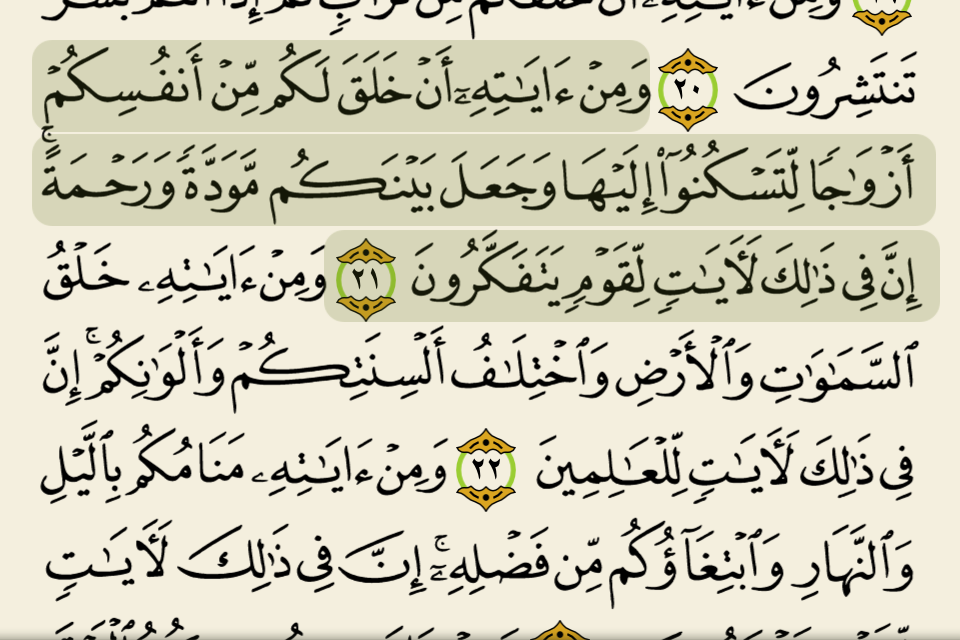 وَمِنْ ءَايَـٰتِهِۦٓ أَنْ خَلَقَكُم مِّن تُرَابٍ ثُمَّ إِذَآ أَنتُم بَشَرٌ
تَنتَشِرُونَ ٢٠ وَمِنْ ءَايَـٰتِهِۦٓ أَنْ خَلَقَ لَكُم مِّنْ أَنفُسِكُمْ
أَزْوَٰجًا لِّتَسْكُنُوٓا۟ إِلَيْهَا وَجَعَلَ بَيْنَكُم مَّوَدَّةً وَرَحْمَةً ۚ
إِنَّ فِى ذَٰلِكَ لَـَٔايَـٰتٍ لِّقَوْمٍ يَتَفَكَّرُونَ ٢١ وَمِنْ ءَايَـٰتِهِۦ خَلْقُ
ٱلسَّمَـٰوَٰتِ وَٱلْأَرْضِ وَٱخْتِلَـٰفُ أَلْسِنَتِكُمْ وَأَلْوَٰنِكُمْ ۚ إِنَّ
فِى ذَٰلِكَ لَـَٔايَـٰتٍ لِّلْعَـٰلِمِينَ ٢٢ وَمِنْ ءَايَـٰتِهِۦ مَنَامُكُم بِٱلَّيْلِ
وَٱلنَّهَارِ وَٱبْتِغَآؤُكُم مِّن فَضْلِهِۦٓ ۚ إِنَّ فِى ذَٰلِكَ لَـَٔايَـٰتٍ